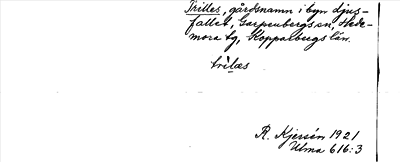 Trilles, gårdsnamn i byn djus-
fallet, Garpenbergs sn, Hede-
mora tg, Kopparbergs län.
trìlæs
R. Kjersén 1921
Ulma 616:3